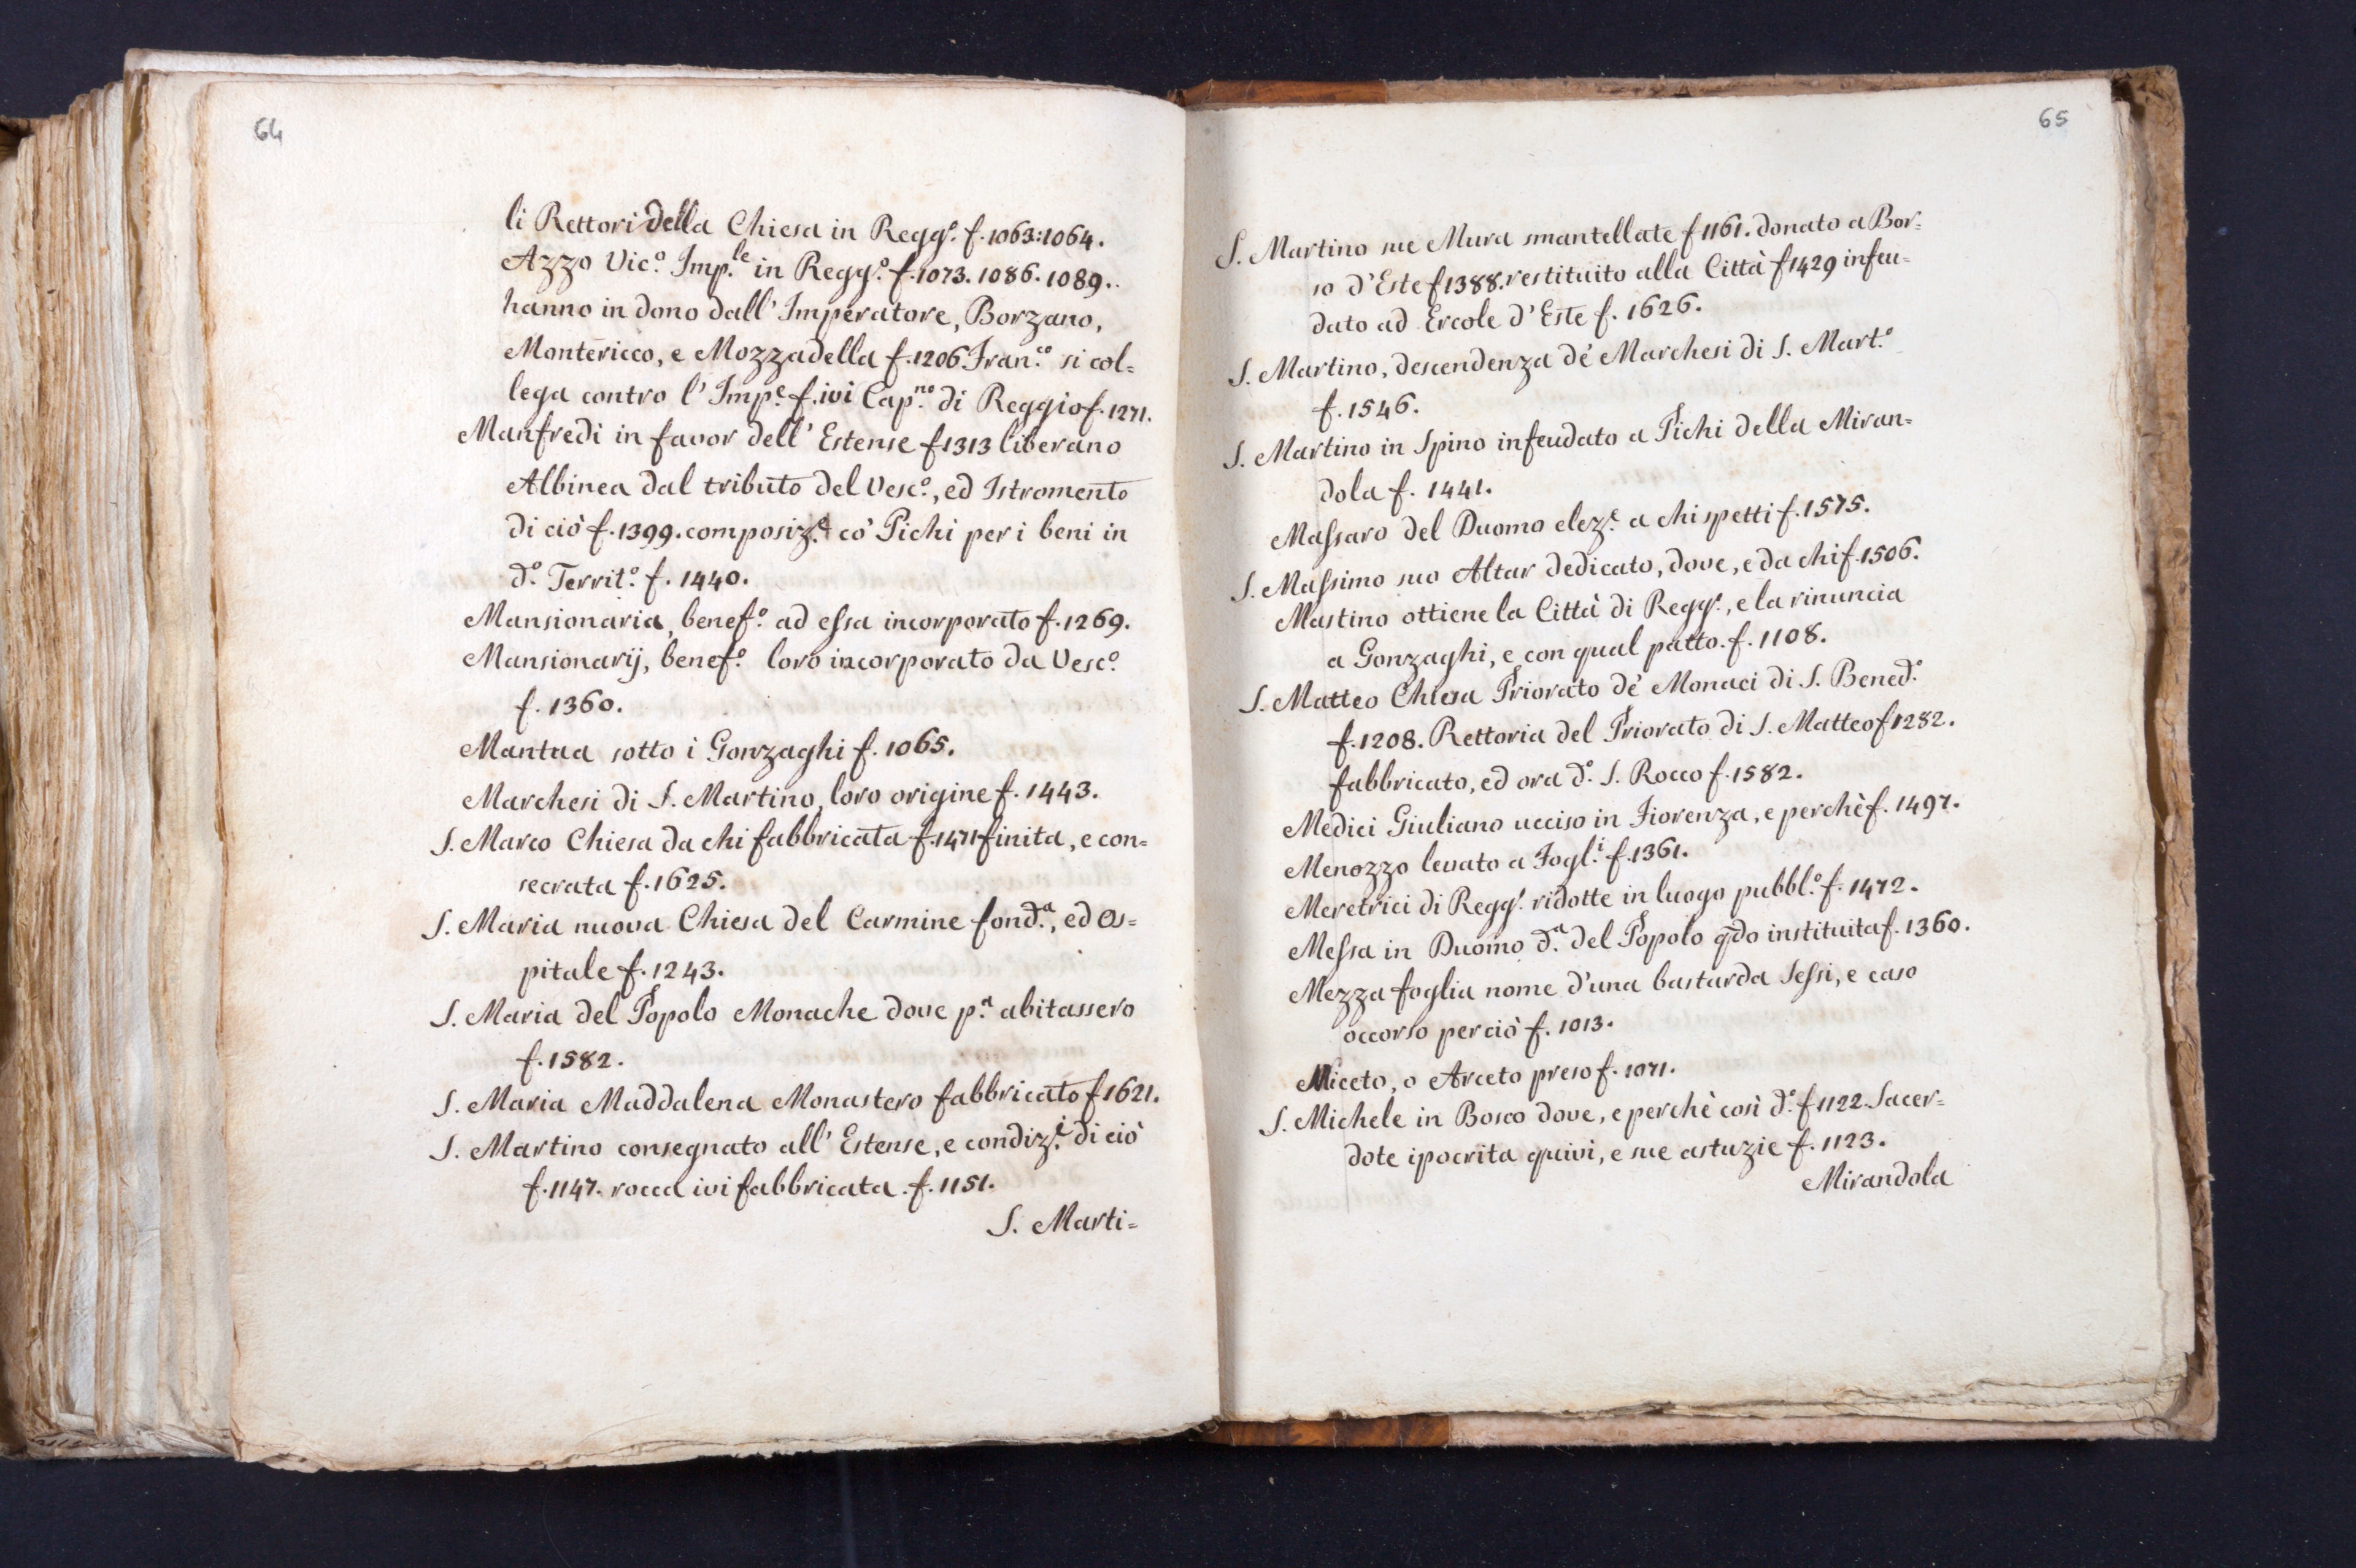 64
li Rettori della Chiesa in Regg.º f. 1063:1064.
Azzo Vic.º Imp.le in Regg.º f. 1073. 1086. 1089..
hanno in dono dall' Imperatore, Borzano,
Montericco, e Mozzadella f. 1206 Fran.co si col=
lega contro l' Imp.e f. ivi Cap.no di Reggio f. 1271.
Manfredi in favor dell' Estense f 1313 liberano
Albinea dal tributo del Vesc.º, ed Istromento
di ciò f. 1399. composiz.e cò Pichi per i beni in
d.º Territ.º f. 1440.
Mansionaria, benef.º ad essa incorporato f. 1269.
Mansionarij, benef.º loro incorporato da Vesc.º
f. 1360.
Mantua sotto i Gonzaghi f. 1065.
Marchesi di S. Martino, loro origine f. 1443.
S. Marco Chiesa da chi fabbricata f. 1471 finita, e con=
secrata f. 1625.
S. Maria nuova Chiesa del Carmine fond.a, ed Os=
pitale f. 1243.
S. Maria del Popolo Monache dove p.a abitassero
f. 1582.
S. Maria Maddalena Monastero fabbricato f 1621.
S. Martino consegnato all' Estense, e condiz.i di ciò
f. 1147. rocca ivi fabbricata. f. 1151.
S. Marti=
65
S. Martino sue Mura smantellate f 1161. donato a Bor=
so d'Este f 1388. restituito alla Città f 1429 infeu=
dato ad Ercole d'Este f. 1626.
S. Martino, descendenza dè Marchesi di S. Mart.º
f. 1546.
S. Martino in Spino infeudato a Pichi della Miran=
dola f. 1441.
Massaro del Duomo elez.e a chi spetti f. 1575.
S. Massimo suo Altar dedicato, dove, e da chi f. 1506.
Mastino ottiene la Città di Regg.º, e la rinuncia
a Gonzaghi, e con qual patto. f. 1108.
S. Matteo Chiesa Priorato dè Monaci di S. Bened.º
f. 1208. Rettoria del Priorato di S. Matteo f 1282.
fabbricato, ed ora d.º S. Rocco f. 1582.
Medici Giuliano ucciso in Fiorenza, e perchè f. 1497.
Menozzo levato a Fogl.i f. 1361.
Meretrici di Regg.º ridotte in luogo pubbl.º f. 1472.
Messa in Duomo d.a del Popolo qdo instituita f. 1360.
Mezza foglia nome d'una bastarda Sessi, e caso
occorso perciò f. 1013.
Miceto, o Arceto preso f. 1071.
S. Michele in Bosco dove, e perchè così d.º f 1122. Sacer=
dote ipocrita quivi, e sue astuzie f. 1123.
Mirandola